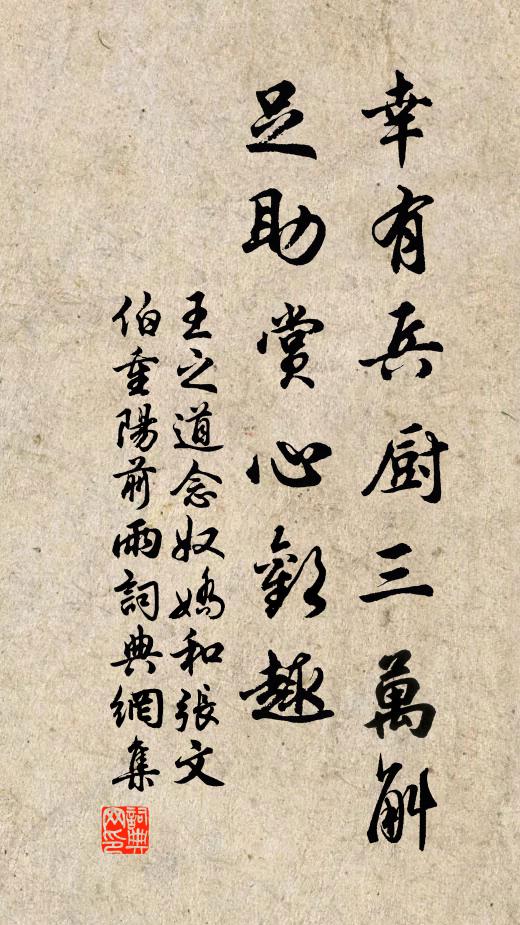 幸有兵厨三萬斛
足助賞心歡趣
王之道念奴嬌和張文
伯重陽前雨詞典網集
詞典
网印